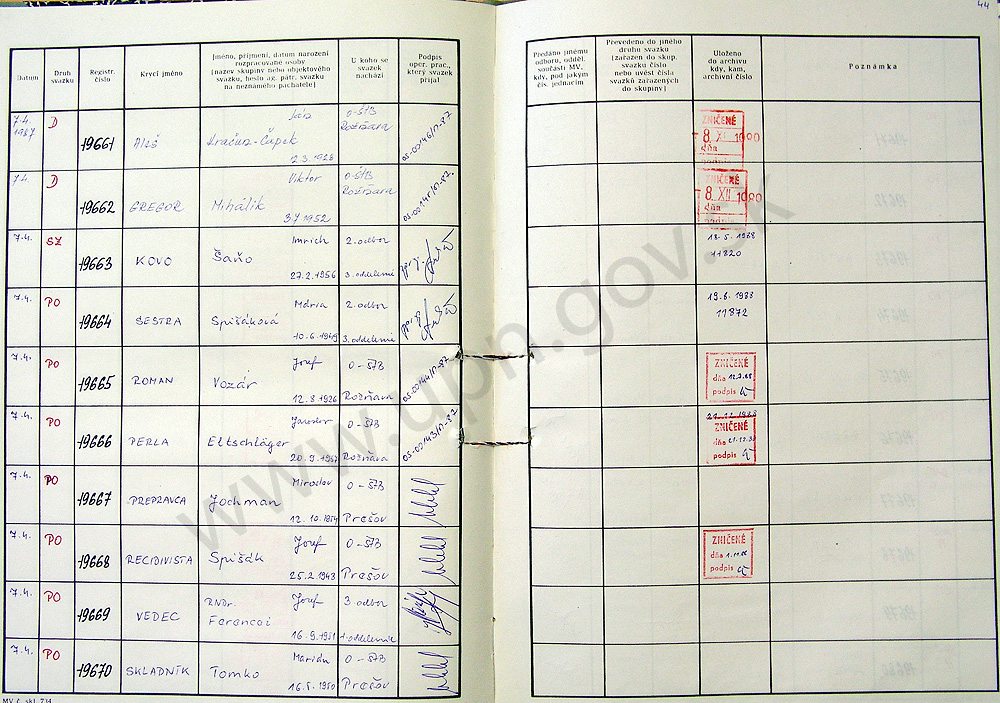 44
Datum
Druh svazku
Registr. číslo
Krycí jméno
Jméno, příjmení, datum narození rozpracované osoby
[název skupiny nebo objektového svazku, heslo ag. pátr. svazku na neznámého pachatele]
U koho se svazek nachází
Podpis oper. prac., který svazek přijal
Předáno jinému odboru, odděl. součásti MV, kdy, pod jakým čís. jednacím
Převedeno do jiného druhu svazku [zařazen do skup. svazku číslo nebo uvést čísla svazků zařazených do skupiny]
Uloženo do archivu kdy, kam, archivní číslo
Poznámka
7.4. 1987 D 19661 Aleš Kračún-Čápek 2.3.1928 O-ŠTB Rožňava OS-0046/N-87
ZNIČENÉ 8 XII 1990 dňa podpis
7.4. D 19662 GREGOR Viktor Mihálik 3.7.1952 O-ŠTB Rožňava OS-0045/N-87
ZNIČENÉ 8 XII 1990 dňa podpis
7.4. SZ 19663 KOVO Imrich Šaňo 27.2.1956 2. odbor 3. oddelenie
13-5-1988 11820
7.4. PO 19664 SESTRA Mária Spišáková 10.6.1949 2. odbor 3. oddelenie
19.6.1988 11872
7.4. PO 19665 ROMAN Jozef Vozár 12.8.1926 O-ŠTB Rožňava OS-0044/N-87
ZNIČENÉ dňa podpis
7.4. PO 19666 PERLA Jaroslav Eltschläger O-ŠTB Rožňava OS-0043/N-87
ZNIČENÉ dňa podpis
7.4. PO 19667 PREPRAVCA Miroslav Jochman 12.10.1954 O-ŠTB Prešov
7.4. PO 19668 RECIDIVISTA Jozef Spišák 25.2.1943 O-ŠTB Prešov
ZNIČENÉ dňa podpis
7.4. PO 19669 VEDEC RNDr. Jozef Ferencei 16.9.1951 3. odbor 1. oddelenie
7.4. PO 19670 SKLADNÍK Marián Tomko 16.5.1950 O-ŠTB Prešov
www.upn.gov.sk